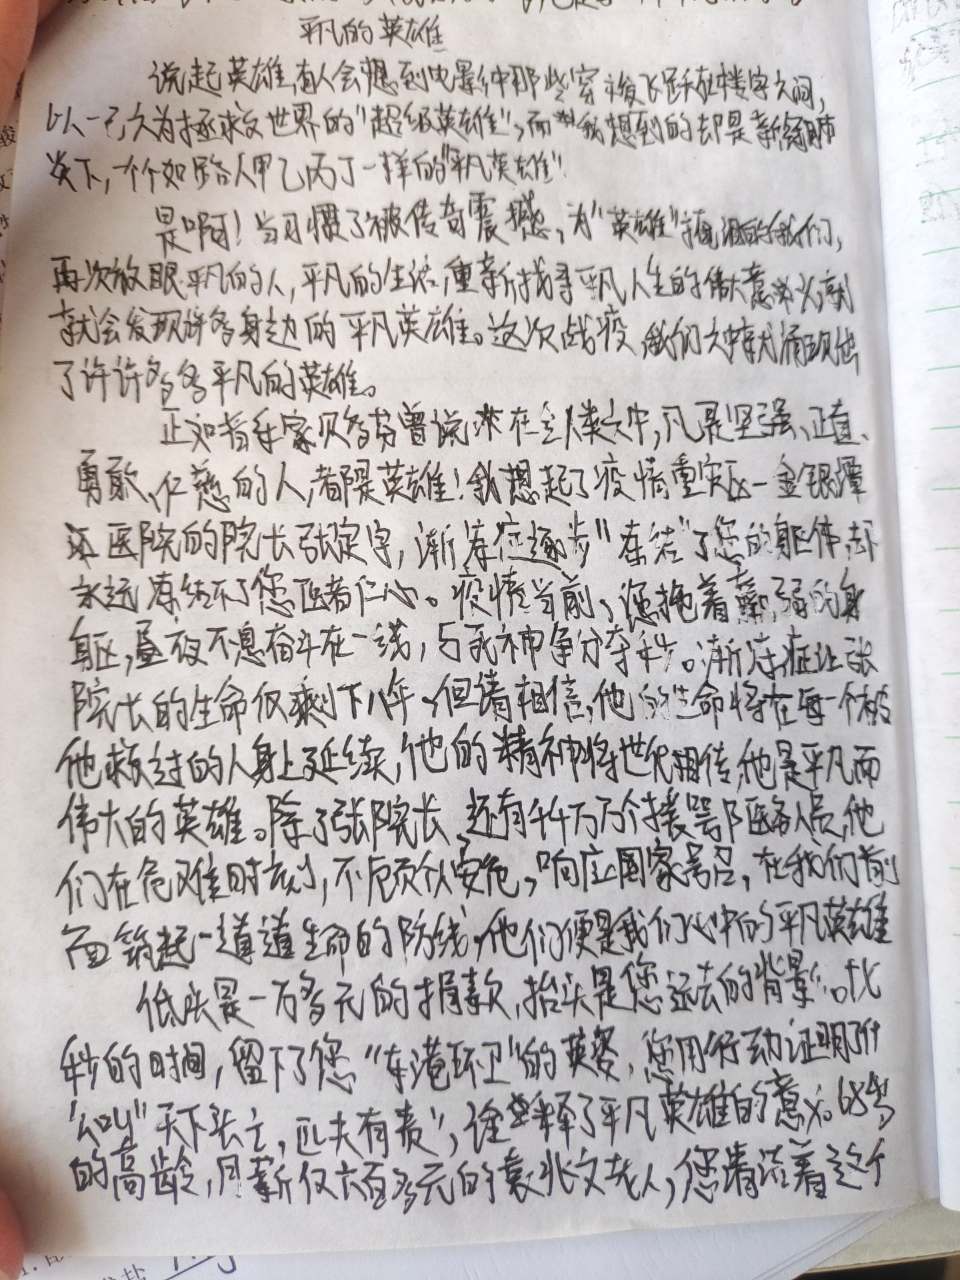 平凡的英雄
说起英雄,有人会想到电影中那些穿梭飞跃在楼宇之间,
以一己之力拯救世界的“超级英雄”,而我想到的却是新冠肺
炎下,一个个如路人甲乙丙丁一样的“平凡英雄”!
是啊!当习惯了被传奇震撼,为“英雄”的我们,
再次放眼平凡的人,平凡的生活,重新找寻平凡人生的伟大意义,就
就会发现许多身边的平凡英雄。这次战疫,我们大中就涌现出
了许许多多平凡的英雄。
正如音乐家贝多芬曾说 在全人类之中,凡是坚强、正直、
勇敢、仁慈的人,都是英雄!我想起了疫情重灾区—金银潭
医院的院长张定宇,渐冻症逐步“冻结”了您的身体,却
永远冻结不了您医者仁心。疫情当前,您拖着羸弱的身
躯,昼夜不息奋斗在一线,与死神争分夺秒。渐冻症让张
院长的生命仅剩下八年,但请相信,他的生命将在每一个被
他救过的人身上延续,他的精神将世代相传,他是平凡而
伟大的英雄。除了张院长,还有千千万万个援鄂医务人员,他
们在危难时刻,不顾个人安危,响应国家号召,在我们前
面筑起一道道生命的防线,他们便是我们心中的平凡英雄
低头是一万多元的捐款,抬头是您远去的背影。
秒的时间,留下了您“东港环卫”的英姿,您用行动证明了什
么叫“天下兴亡,匹夫有责”,诠释了平凡英雄的意义。68岁
的高龄,月薪仅六百多元的袁兆文老人,您清洁着这个